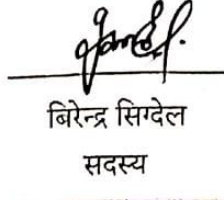 बिरेन्द्र सिग्देल
सदस्य